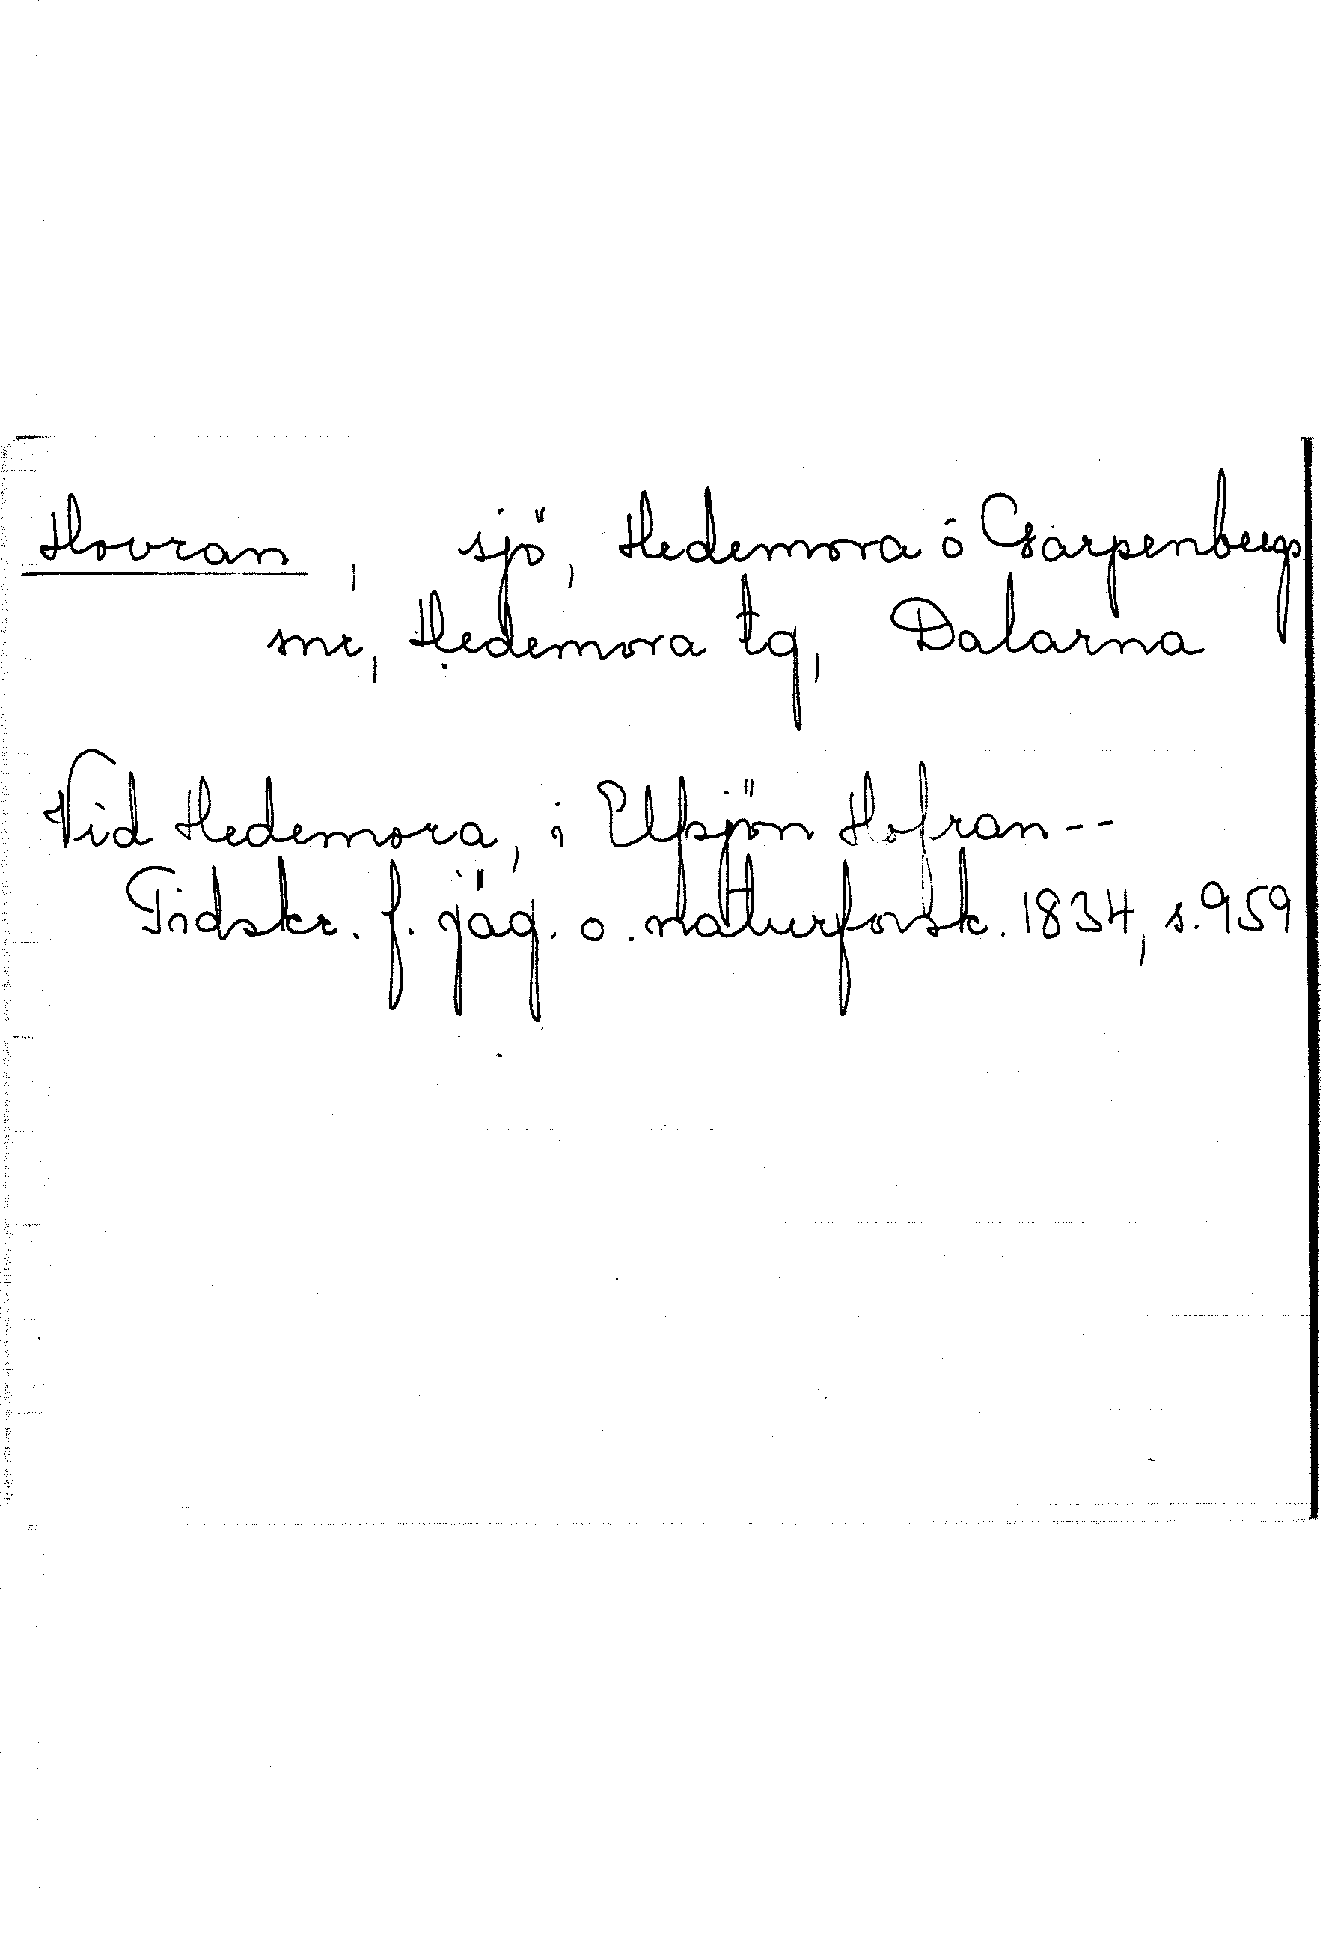 Hovran, sjö, Hedemora o Garpenbergs
snr, Hedemora tg, Dalarna
Vid Hedemora, i Elfsjön Hofran--
Tidskr. f. jäg. o. naturforsk. 1834, s. 959